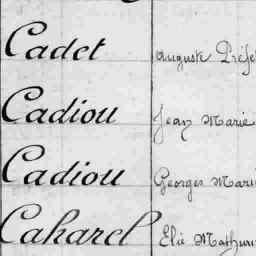 Cadet Auguste Préfet
Cadiou Jean Marie
Cadiou Georges Marie
Caharel Elie Mathurin